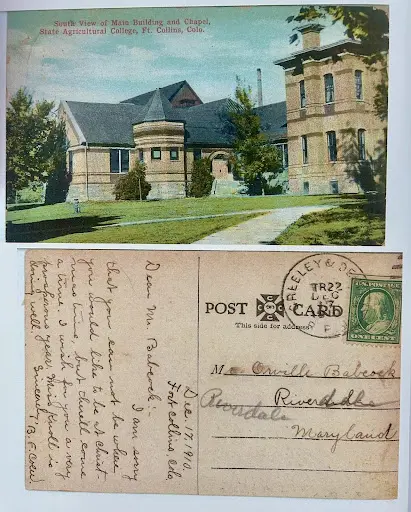 South View of Main Building and Chapel,
State Agricultural College, Ft. Collins, Colo.
Dec. 17, 1910.
Fort Collins, Colo.
Dear Mr. Babcock:-
I am sorry
that you cannot be where
you would like to be at Christ-
mas time, but things will come
a time. I wish for you a very
prosperous year. Miss Knoll is
doing well.
Sincerely,
POST CARD
This side for address
GREELEY & DEN
TR22
DEC
17
U.S. POSTAGE
ONE CENT
Mr. Orville Babcock
Riverdale
Riverdale
Maryland